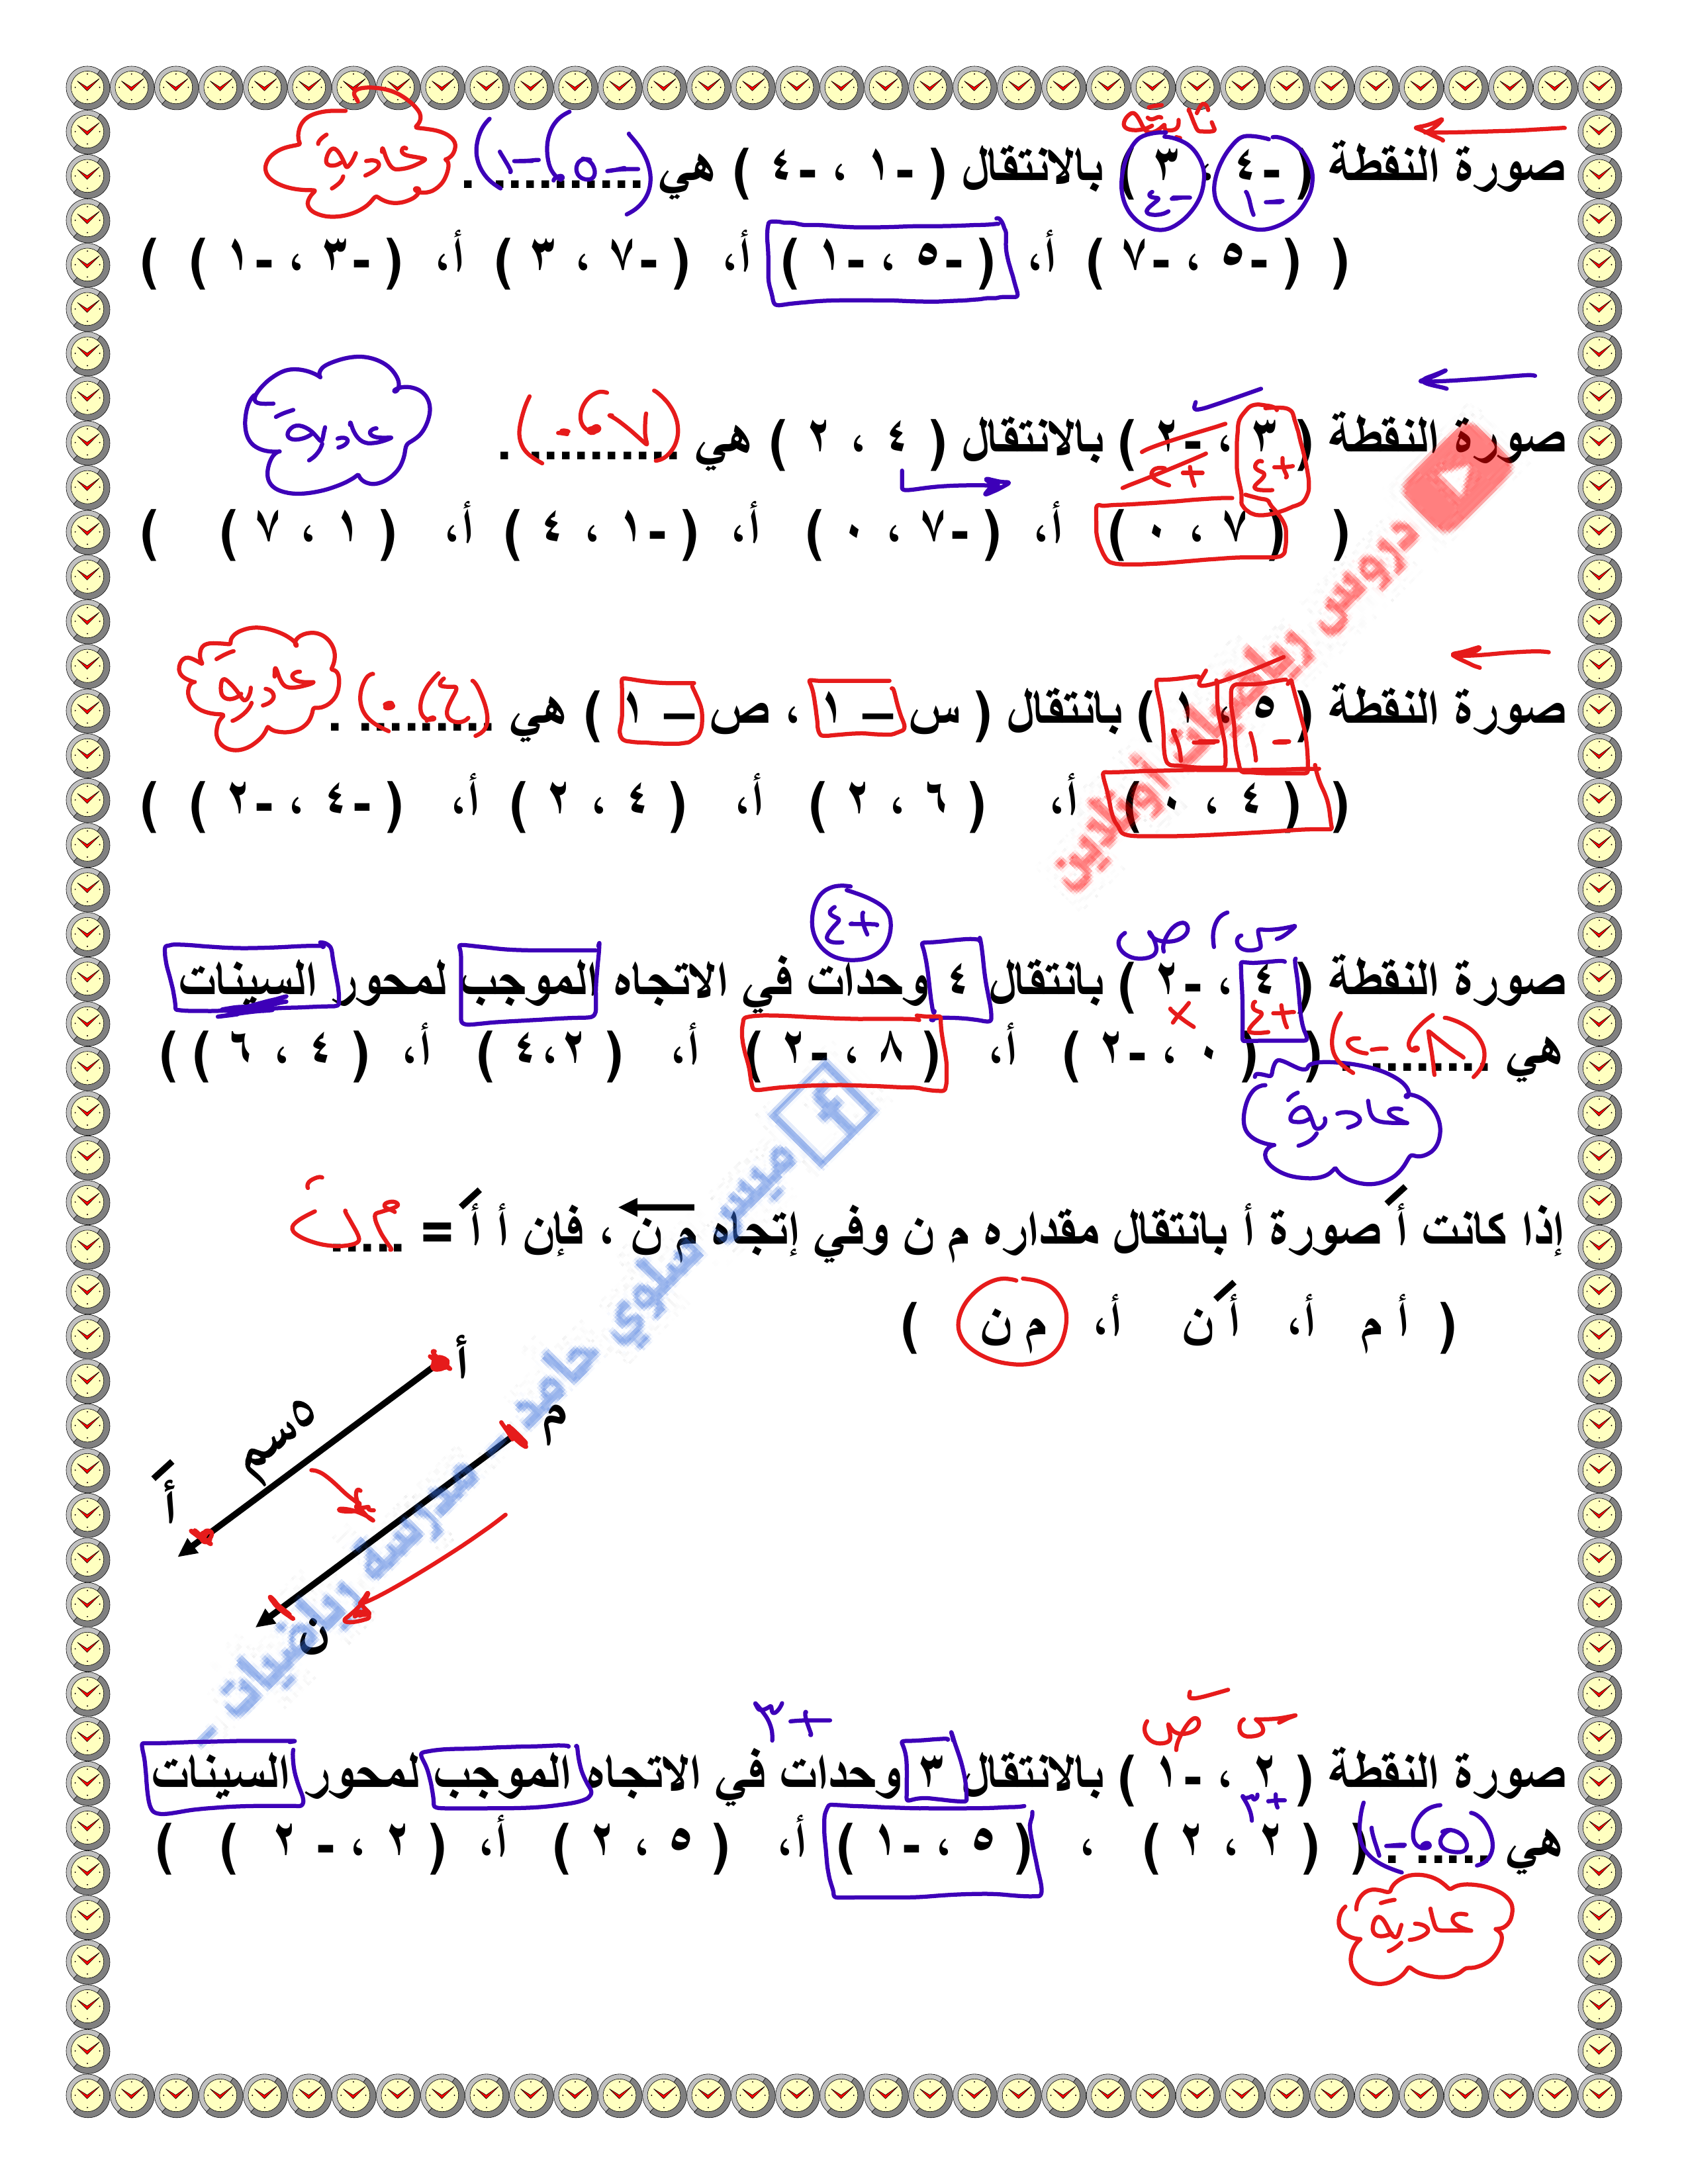 ثابتة
صورة النقطة ( -٤ ، ٣ ) بالانتقال ( -١ ، -٤ ) هي .......... .
-١ -٤
(-٥ ، -١)
عادية
( ( -٥ ، -٧ ) أ، ( -٥ ، -١ ) أ، ( -٧ ، ٣ ) أ، ( -٣ ، -١ ) )
صورة النقطة ( ٣ ، -٢ ) بالانتقال ( ٤ ، ٢ ) هي .......... .
+٤ +٢
(٧ ، ٠)
عادية
( ( ٧ ، ٠ ) أ، ( -٧ ، ٠ ) أ، ( -١ ، ٤ ) أ، ( ١ ، ٧ ) )
صورة النقطة ( ٥ ، ١ ) بانتقال ( س – ١ ، ص – ١ ) هي ......... .
-١ -١
(٤ ، ٠)
عادية
( ( ٤ ، ٠ ) أ، ( ٦ ، ٢ ) أ، ( ٤ ، ٢ ) أ، ( -٤ ، -٢ ) )
س ، ص
+٤
صورة النقطة ( ٤ ، -٢ ) بانتقال ٤ وحدات في الاتجاه الموجب لمحور السينات
+٤ ×
هي ......... . ( ( ٠ ، -٢ ) أ، ( ٨ ، -٢ ) أ، ( ٢،٤ ) أ، ( ٤ ، ٦ ) )
(٨ ، -٢)
عادية
إذا كانت أَ صورة أ بانتقال مقداره م ن وفي إتجاه م ن ، فإن أ أَ = .....
م ن
( أ م أ، أَ ن أ، م ن )
أ
٥سم
م
أَ
ن
س ص
+٣
صورة النقطة ( ٢ ، -١ ) بالانتقال ٣ وحدات في الاتجاه الموجب لمحور السينات
+٣
هي ..... . ( ( ٢ ، ٢ ) ، ( ٥ ، -١ ) أ، ( ٥ ، ٢ ) أ، ( ٢ ، - ٢ ) )
(٥ ، -١)
عادية
دروس رياضيات أونلاين
ميس سلوي حامد - مدرسة رياضيات -